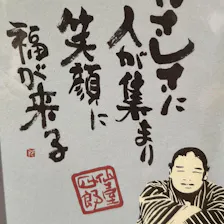 やさしさに
人が集まり
笑顔に
福が来る
仙空
四郎